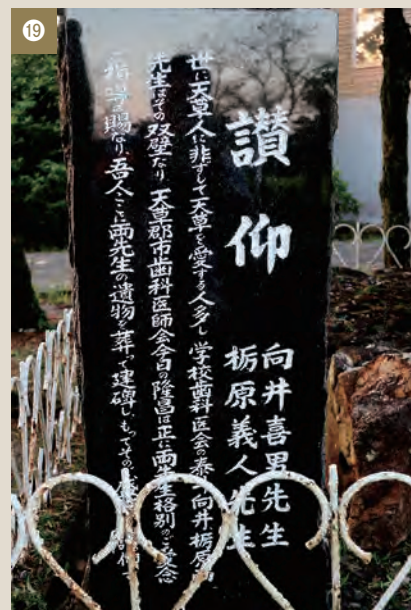 19
讃仰
向井喜男先生
栃原義人先生
世に天草人に非ずして天草を愛する人多し 学校歯科医会の泰 向井栃原
先生はその双璧なり 天草郡市歯科医師会今日の隆昌は正に両先生格別のご愛念
指導の賜なり 吾人ここに両先生の遺物を葬って建碑し もってその